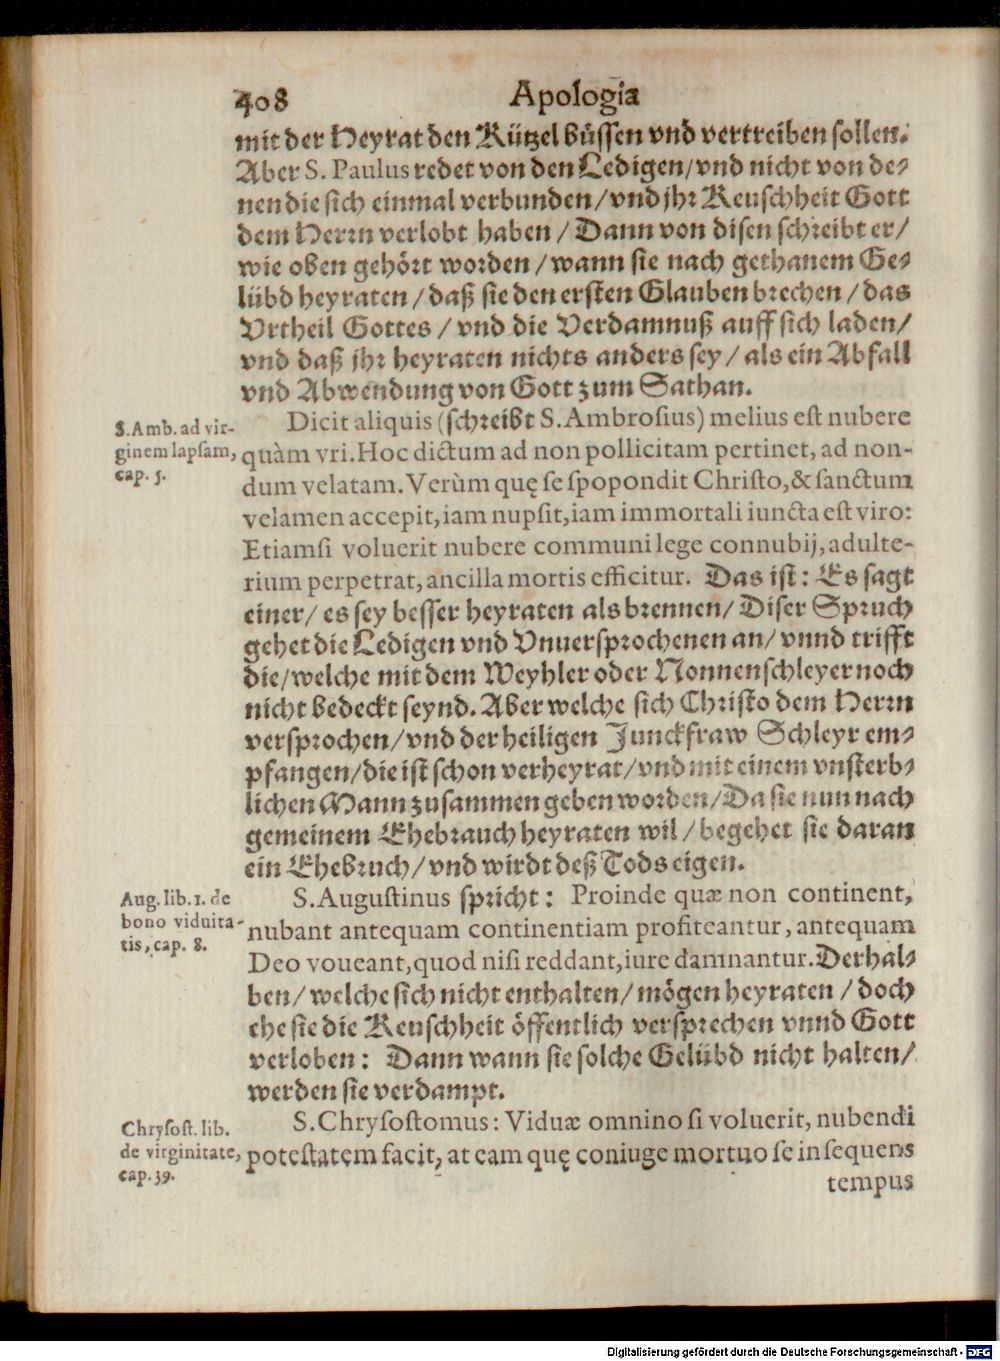 408 Apologia
mit der Heyrat den Kützel büssen vnd vertreiben sollen.
Aber S. Paulus redet von den Ledigen/vnd nicht von de⸗
nen die sich einmal verbunden/vnd jhr Keuschheit Gott
dem Herrn verlobt haben/ Dann von disen schreibt er/
wie oben gehört worden/wann sie nach gethanem Ge⸗
lübd heyraten/daß sie den ersten Glauben brechen/das
Vrtheil Gottes/vnd die Verdamnuß auff sich laden/
vnd daß jhr heyraten nichts anders sey/als ein Abfall
vnd Abwendung von Gott zum Sathan.
S. Amb. ad vir-
ginem lapsam,
cap. 5.
Dicit aliquis (schreibt S. Ambrosius) melius est nubere
quàm vri. Hoc dictum ad non pollicitam pertinet, ad non-
dum velatam. Verùm quę se spopondit Christo, & sanctum
velamen accepit, iam nupsit, iam immortali iuncta est viro:
Etiamsi voluerit nubere communi lege connubij, adulte-
rium perpetrat, ancilla mortis efficitur. Das ist: Es sagt
einer/ es sey besser heyraten als brennen/ Diser Spruch
gehet die Ledigen vnd Vnuersprochenen an/ vnnd trifft
die/welche mit dem Weyhler oder Nonnenschleyer noch
nicht bedeckt seynd. Aber welche sich Christo dem Herrn
versprochen/vnd der heiligen Junckfraw Schleyr em⸗
pfangen/die ist schon verheyrat/vnd mit einem vnsterb⸗
lichen Mann zusammen geben worden/Da sie nun nach
gemeinem Ehebrauch heyraten wil/begehet sie daran
ein Ehebruch/vnd wirdt deß Tods eigen.
Aug. lib. 1. de
bono viduita-
tis, cap. 8.
S. Augustinus spricht: Proinde quæ non continent,
nubant antequam continentiam profiteantur, antequam
Deo voueant, quod nisi reddant, iure damnantur. Derhal⸗
ben/welche sich nicht enthalten/mögen heyraten/doch
ehe sie die Keuschheit öffentlich versprechen vnnd Gott
verloben: Dann wann sie solche Gelübd nicht halten/
werden sie verdampt.
Chrysost. lib.
de virginitate,
cap. 39.
S. Chrysostomus: Viduæ omnino si voluerit, nubendi
potestatem facit, at eam quę coniuge mortuo se insequens
tempus
Digitalisierung gefördert durch die Deutsche Forschungsgemeinschaft - DFG